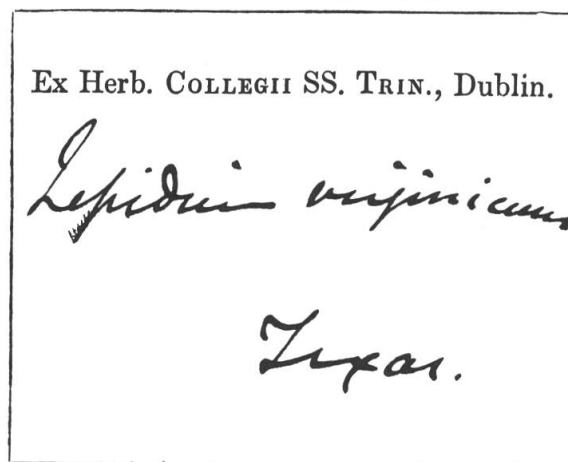 Ex Herb. COLLEGII SS. TRIN., Dublin.
Lepidium virginicum
Texas.